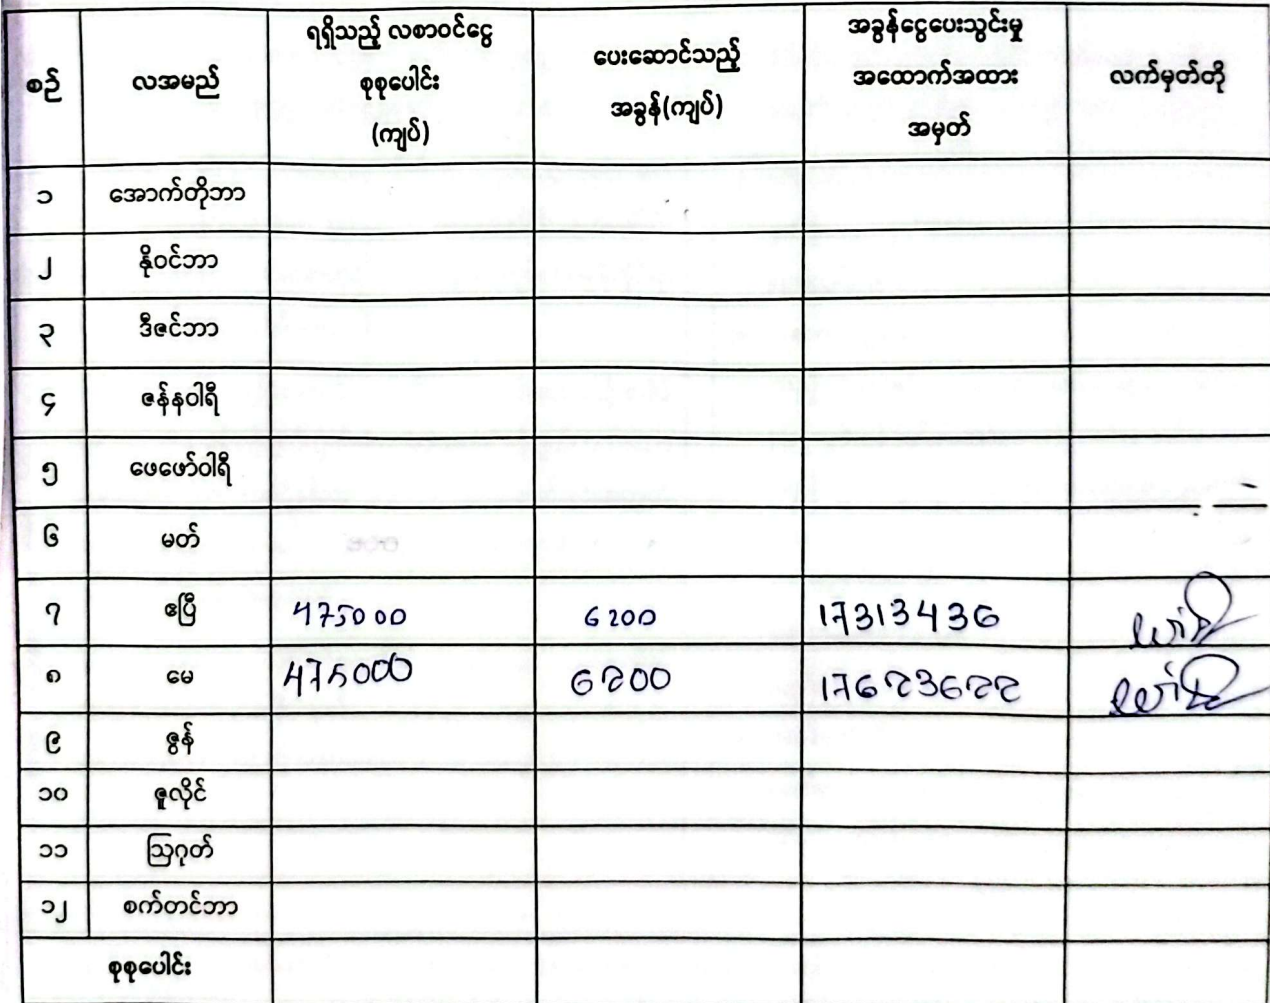 စဉ်
လအမည်
ရရှိသည့် လစာဝင်ငွေ
စုစုပေါင်း
(ကျပ်)
ပေးဆောင်သည့်
အခွန်(ကျပ်)
အခွန်ငွေပေးသွင်းမှု
အထောက်အထား
အမှတ်
လက်မှတ်တို
၁ အောက်တိုဘာ
၂ နိုဝင်ဘာ
၃ ဒီဇင်ဘာ
၄ ဇန်နဝါရီ
၅ ဖေဖော်ဝါရီ
၆ မတ်
၇ ဧပြီ 475000 6200 17313436
၈ မေ 475000 6200 17623622
၉ ဇွန်
၁၀ ဇူလိုင်
၁၁ ဩဂုတ်
၁၂ စက်တင်ဘာ
စုစုပေါင်း